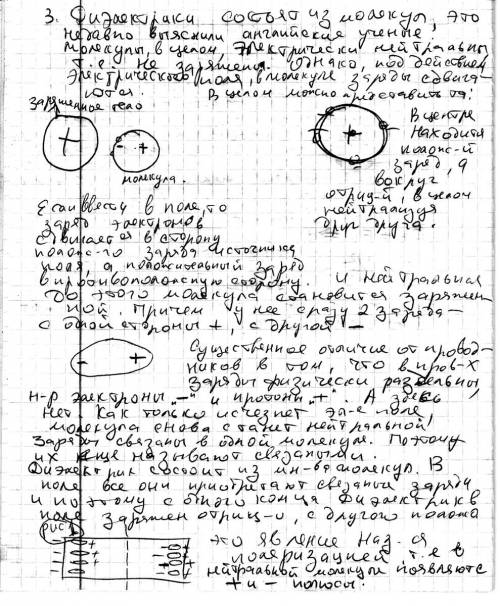 3. Диэлектрики состоят из молекул, это
недавно выяснили английские ученые.
Молекулы, в целом, электрически нейтральны
т.е. не заряжены. Однако, под действием
электрического поля, в молекуле заряды сдвига-
ются.
В целом можно представить так:
Заряженное тело
+
- +
молекула.
+
В центре
находится
полож-й
заряд, а
вокруг
отриц-й, в целом
нейтрализуя
друг друга.
Если ввести в поле, то
заряд электронов
сдвигается в сторону
полож-го заряда источника
поля, а положительный заряд
в противоположную сторону. И нейтральная
до этого молекула становится заряжен
ной. Причем у нее сразу 2 заряда-
с одной стороны +, с другой -
- +
Существенное отличие от провод-
ников в том, что в пров-х
заряды физически раздельны,
н-р электроны "-" и протоны "+". А здесь,
нет. Как только исчезнет эл-е поле,
молекула снова станет нейтральной,
заряды связаны в одной молекуле. Поэтому
их еще называют связаными.
Диэлектрик состоит из мн-ва молекул. В
поле все они приобретают связаный заряд
и поэтому с одного конца диэлектрик в
поле заряжен отриц-о, с другого полож-о
рис 1
это явление наз-ся
поляризацией т.е. в
нейтральной молекуле появляются
+ и - полюсы.